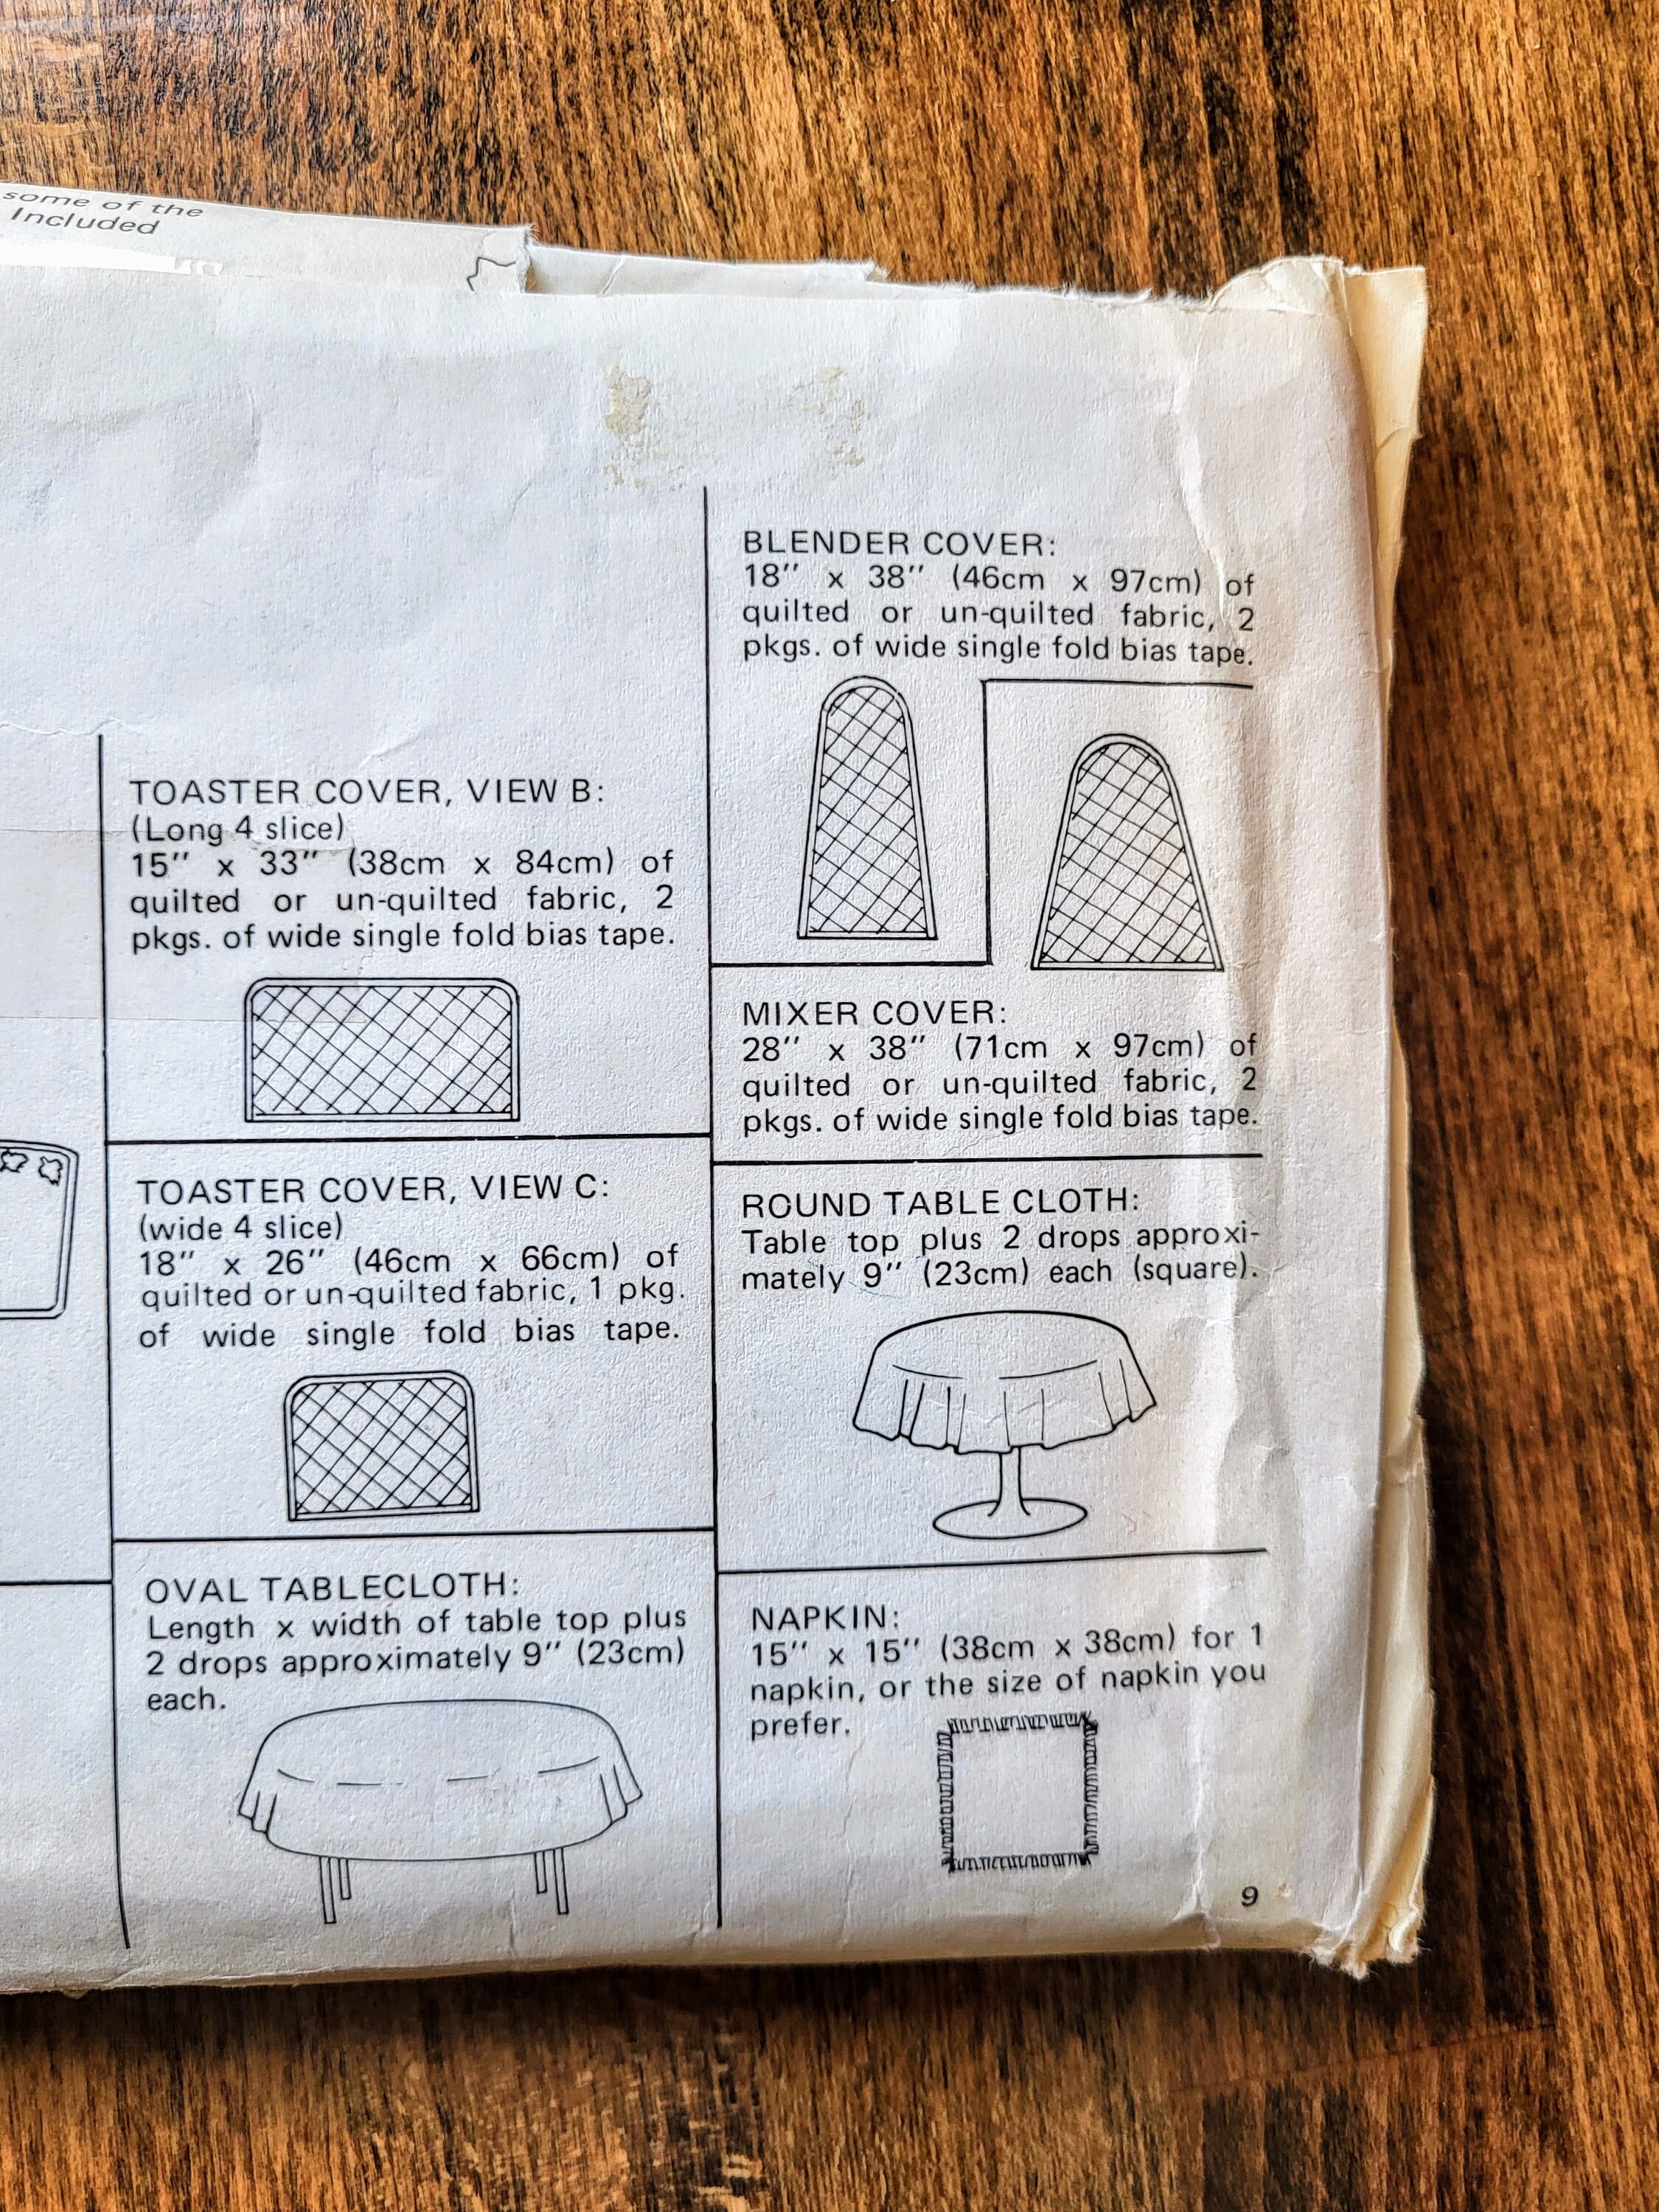 some of the
Included
TOASTER COVER, VIEW B:
(Long 4 slice)
15" x 33" (38cm x 84cm) of
quilted or un-quilted fabric, 2
pkgs. of wide single fold bias tape.
TOASTER COVER, VIEW C:
(wide 4 slice)
18" x 26" (46cm x 66cm) of
quilted or un-quilted fabric, 1 pkg.
of wide single fold bias tape.
OVAL TABLECLOTH:
Length x width of table top plus
2 drops approximately 9" (23cm)
each.
BLENDER COVER:
18" x 38" (46cm x 97cm) of
quilted or un-quilted fabric, 2
pkgs. of wide single fold bias tape.
MIXER COVER:
28" x 38" (71cm x 97cm) of
quilted or un-quilted fabric, 2
pkgs. of wide single fold bias tape.
ROUND TABLE CLOTH:
Table top plus 2 drops approxi-
mately 9" (23cm) each (square).
NAPKIN:
15" x 15" (38cm x 38cm) for 1
napkin, or the size of napkin you
prefer.
9